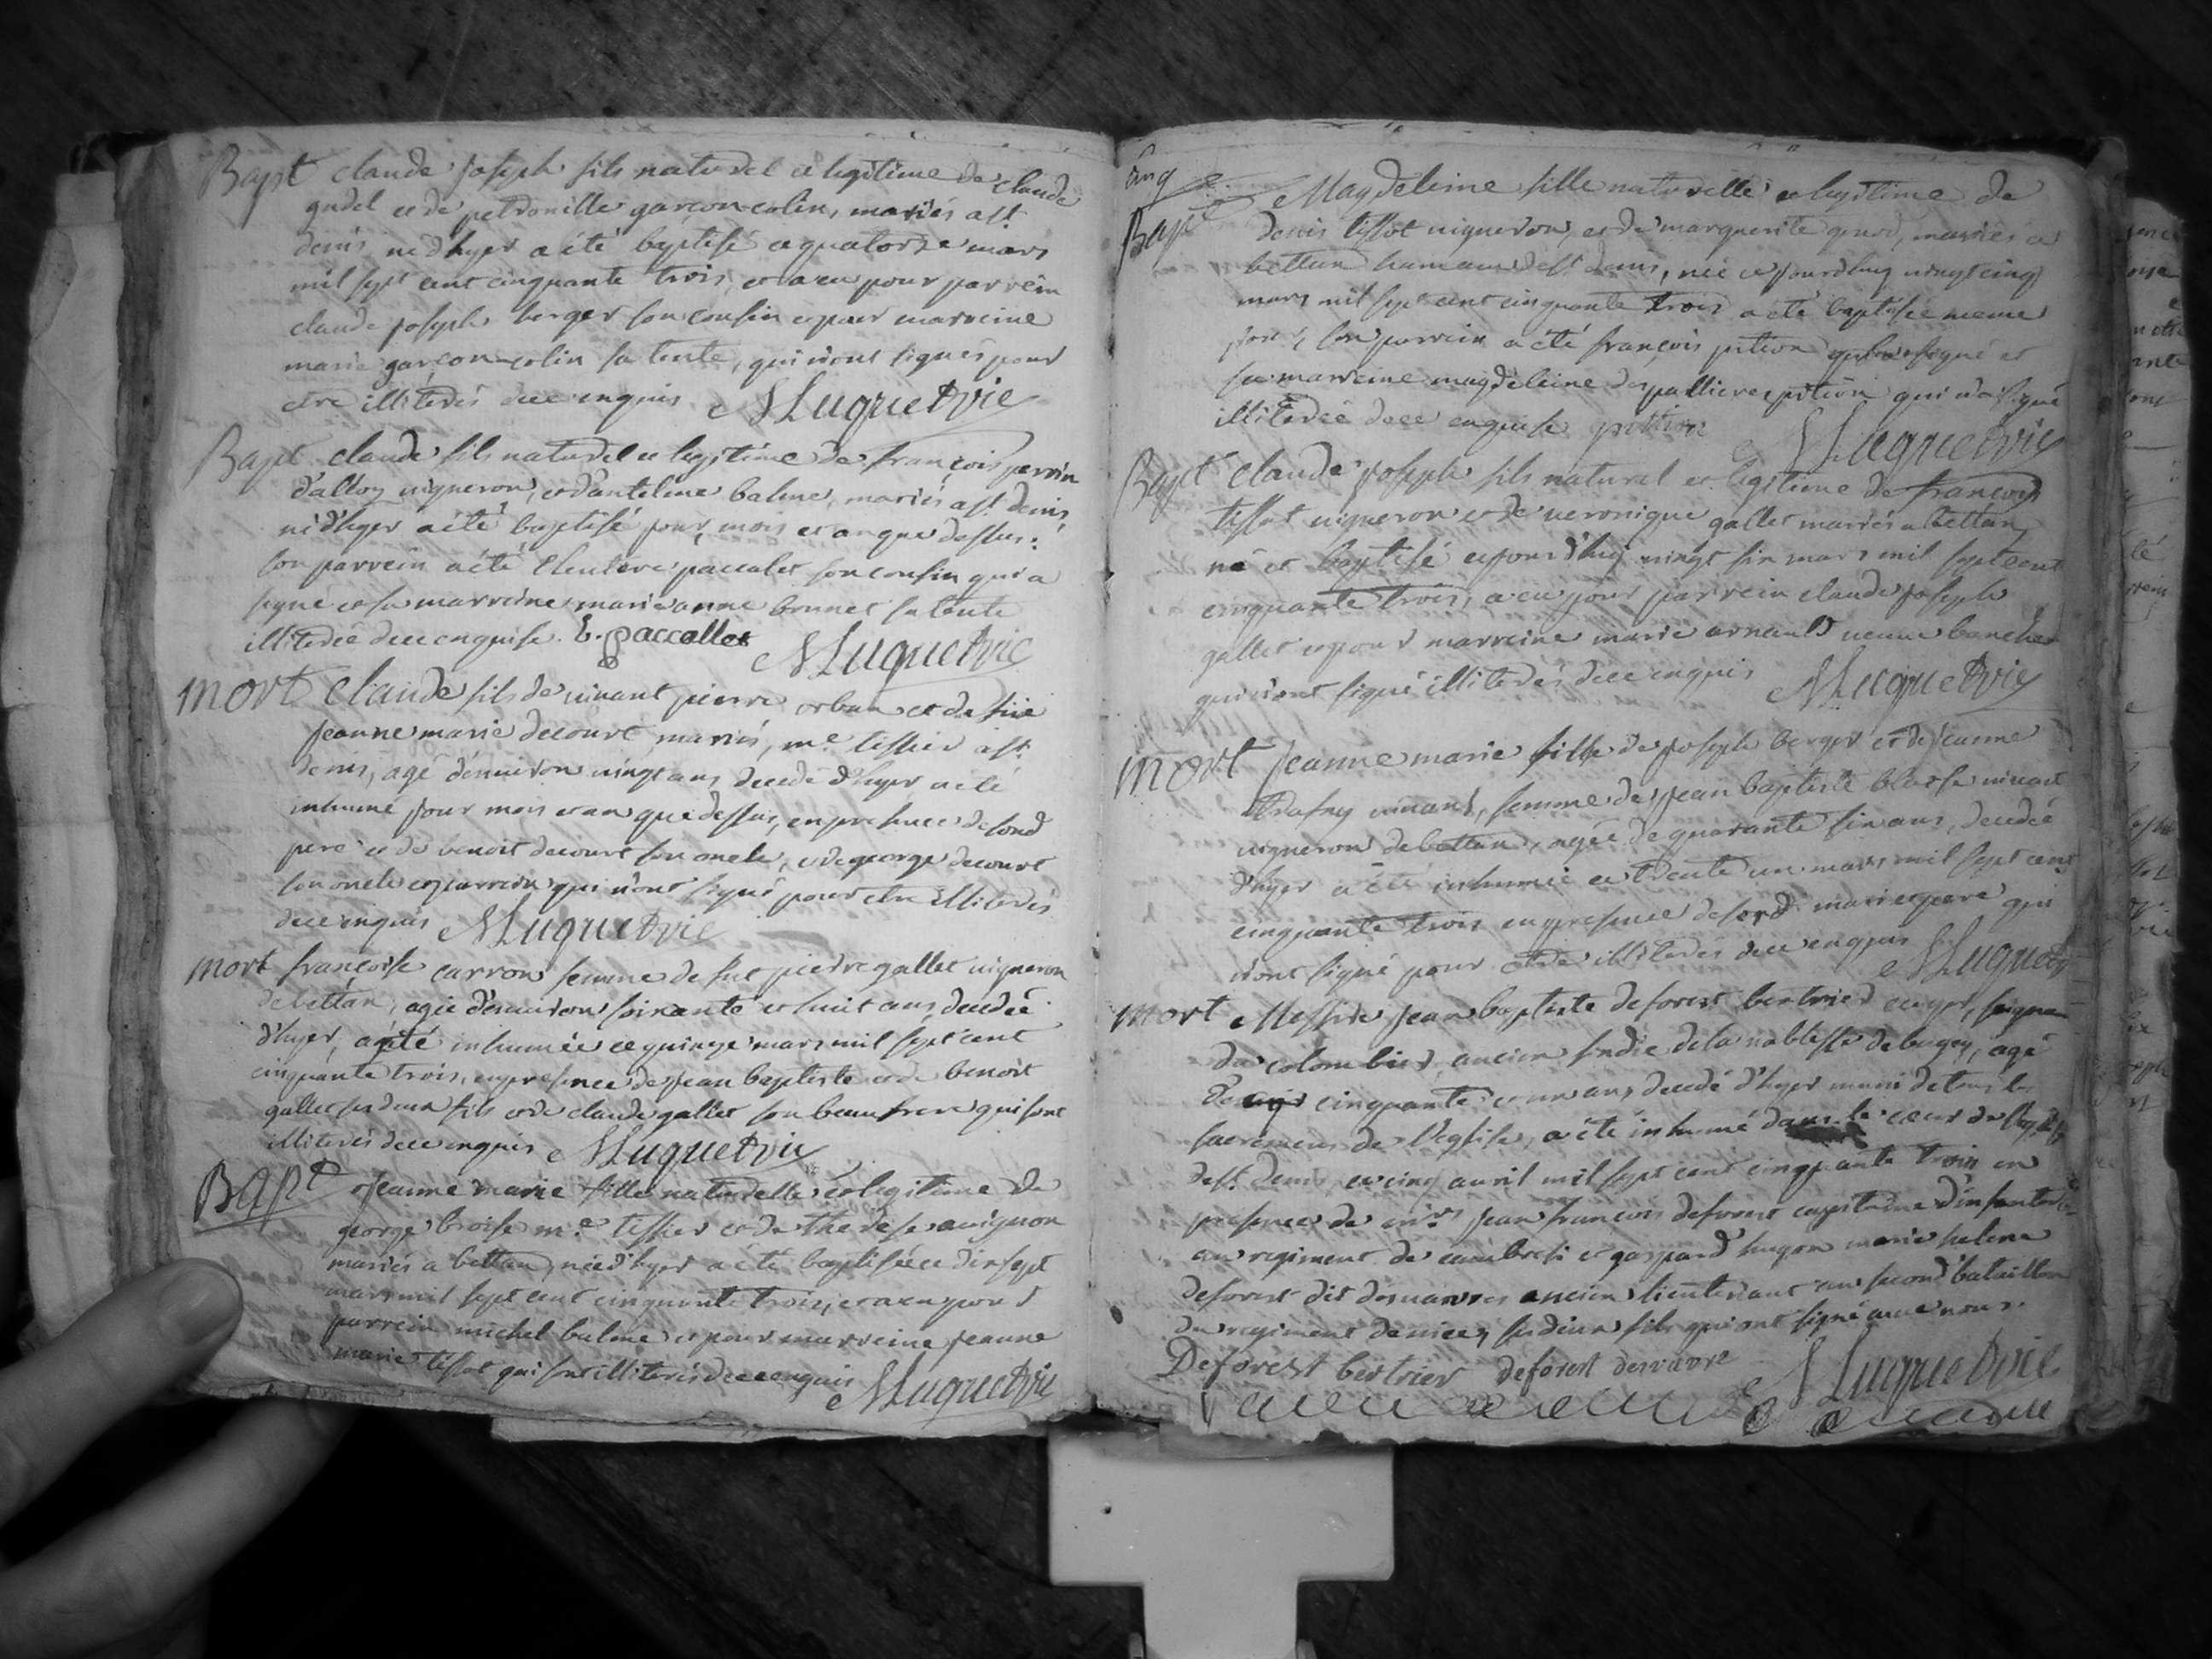 Bapt claude joseph fils naturel et legitime de claude
gudel et de petronille garçon-colin, mariés a st.
denis, né d'hyer a été baptisé ce quatorze mars
mil sept cent cinquante trois, et a eu pour parrein
claude joseph berger son cousin et pour marreine
marie garçon-colin sa tente, qui n'ont signés pour
etre illiterés de ce enquis Luquet vic
Bapt claude fils naturel et legitime de françois perrin
vigneron, et d'anteleme balme, mariés a st. denis,
né d'hyer a été baptisé jour, mois et an que dessus:
son parrein a été paccalet son cousin qui a
signé et sa marreine marie anne brunet sa tente
illiterée de ce enquise. E. paccallet Luquet vic
mort claude fils de vivant pierre orban et de
jeanne marie decourt mariés, me. tissier a st.
denis, agé d'environ vingt ans, decedé d'hyer a eté
inhumé jour mois et an que dessus, en presence de sond
pere et de benoit decourt son oncle, et de george decourt
son oncle et parrein qui n'ont signé pour etre illiterés
de ce enquis Luquet vic
mort françoise carron femme de fut pierre gallet vigneron
de bettan, agée d'environ soixante et huit ans, decedée
d'hyer, a été inhumée ce quinze mars mil sept cent
cinquante trois, en presence de jean baptiste et de benoit
gallet ses deux fils et de claude gallet son beau frere qui sont
illiterés de ce enquis Luquet vic
Bapt jeanne marie fille naturelle et legitime de
george broise me. tissier et de therese avignon
mariés a bettan, née d'hyer a été baptisée ce dix sept
mars mil sept cent cinquante trois, et a eu pour
parrein michel balme et pour marreine jeanne
marie tissot qui sont illiterés de ce enquis
Luquet vic
cinq
Bapt Magdeleine fille naturelle et legitime de
denis tissot vigneron, et de marguerite mariés a
bettan hameau de st. denis, née ce jourd'huy vingt cinq
mars mil sept cent cinquante trois a été baptisée meme
jour, son parrein a été françois pition qui a signé et
sa marreine magdeleine pition qui n'a signé
illiterée de ce enquise pition Luquet vic
Bapt claude joseph fils naturel et legitime de françois
tissot vigneron et de veronique gallet mariés a bettan,
né et baptisé ce jourd'huy vingt six mars mil sept cent
cinquante trois, a eu pour parrein claude joseph
gallet et pour marreine marie arnauld veuve
qui n'ont signé illiterés de ce enquis Luquet vic
mort jeanne marie fille de joseph berger et de jeanne
vivant, femme de jean baptiste vivant
vigneron de bettan, agée de quarante six ans, decedée
d'hyer a été inhumée ce trente un mars mil sept cent
cinquante trois en presence de sesd. mari et pere qui
n'ont signé pour etre illiterés de ce enquis Luquet
mort Messire jean baptiste deforest bertrier ecuyer, seigneur
du colombier, ancien sindic de la noblesse de bugey, agé
de cinquante et un ans, decedé d'hyer muni de tous les
sacremens de l'eglise, a été inhumé dans le cœur de l'eglise
de st. denis, ce cinq avril mil sept cent cinquante trois en
presence de mrs. jean françois deforest capitaine d'infanterie
au regiment de cambresi et gaspard hugon marie helene
deforest dit ancien lieutenant au second bataillon
du regiment de nice, ses deux fils qui ont signé avec nous.
Deforest bertrier deforest Luquet vic